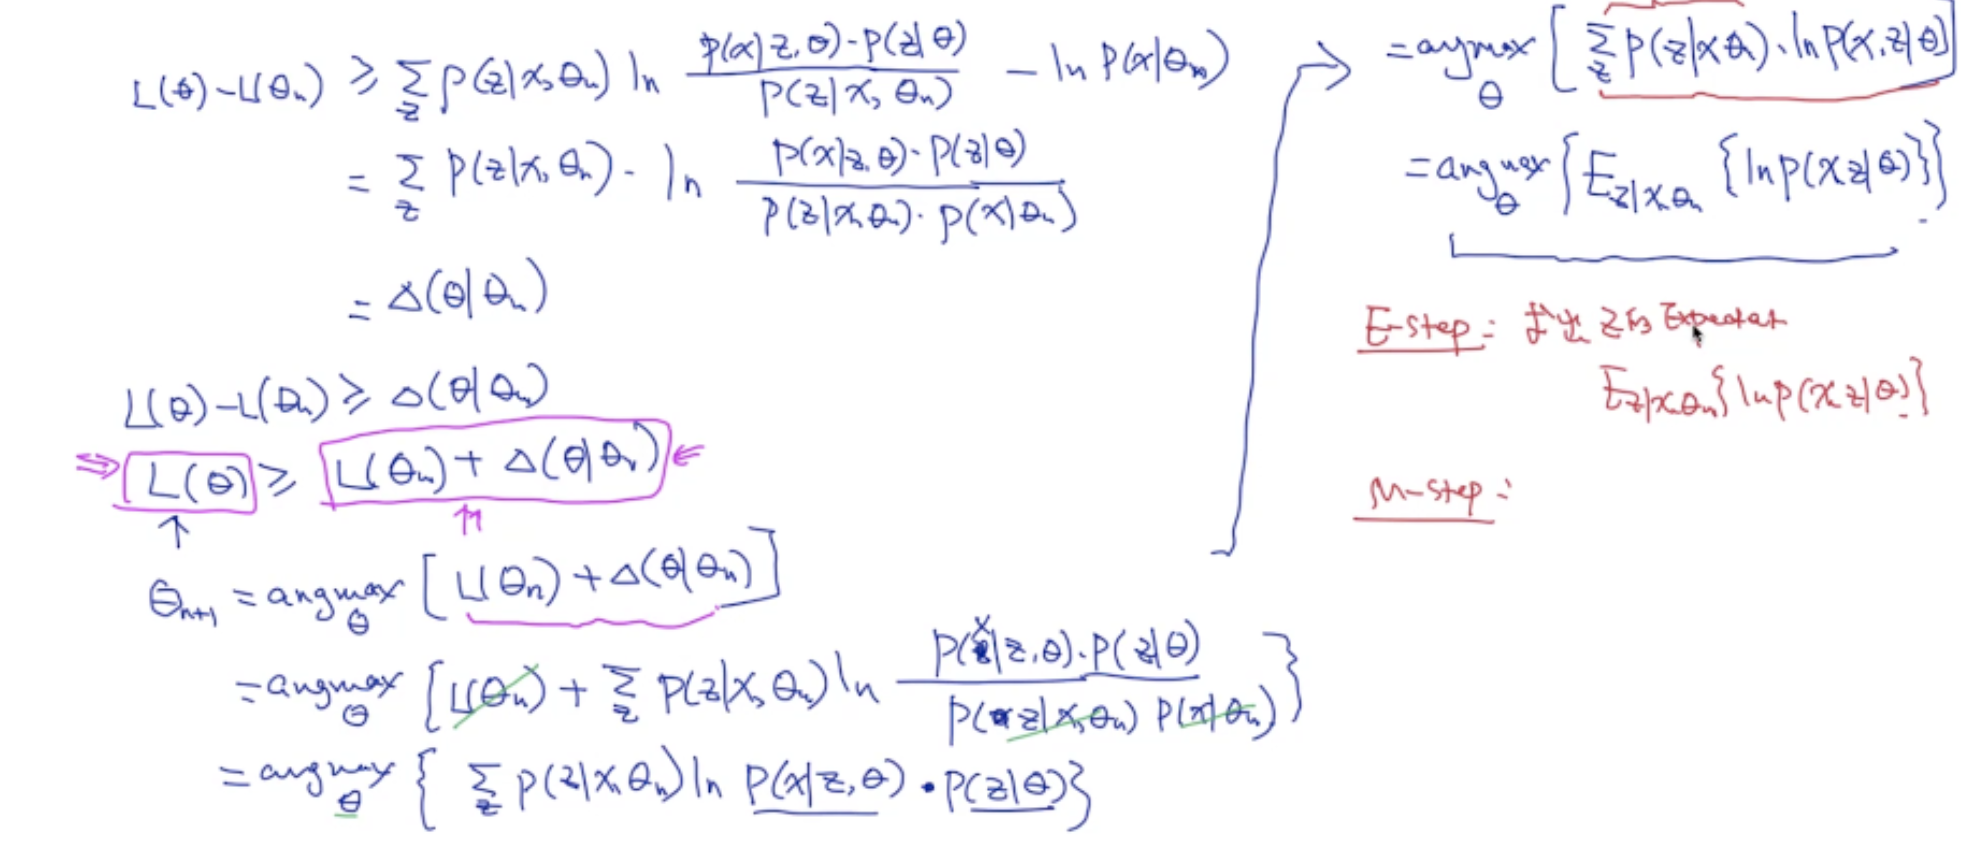 L(θ)-L(θn) ≥ Σz P(z|x,θn) ln P(x|z,θ)·P(z|θ) / P(z|x,θn) - ln P(x|θn)
= Σz P(z|x,θn)· ln P(x|z,θ)·P(z|θ) / P(z|x,θn)·P(x|θn)
= Δ(θ|θn)
L(θ)-L(θn) ≥ Δ(θ|θn)
⇒ L(θ) ≥ L(θn) + Δ(θ|θn) ⇐
↑ ⇑
θn+1 = argmax θ [L(θn) + Δ(θ|θn)]
= argmax θ [L(θn) + Σz P(z|x,θn) ln P(x|z,θ)·P(z|θ) / P(z|x,θn) P(x|θn)}
= argmax θ { Σz P(z|x,θn) ln P(x|z,θ)·P(z|θ)}
= argmax θ [Σz P(z|x θn)·ln P(x,z|θ)]
= argmax θ {E z|x,θn {ln P(x z|θ)}}
E-step: 求出 z的 Expectat
E z|x,θn {ln P(x z|θ)}
M-step: